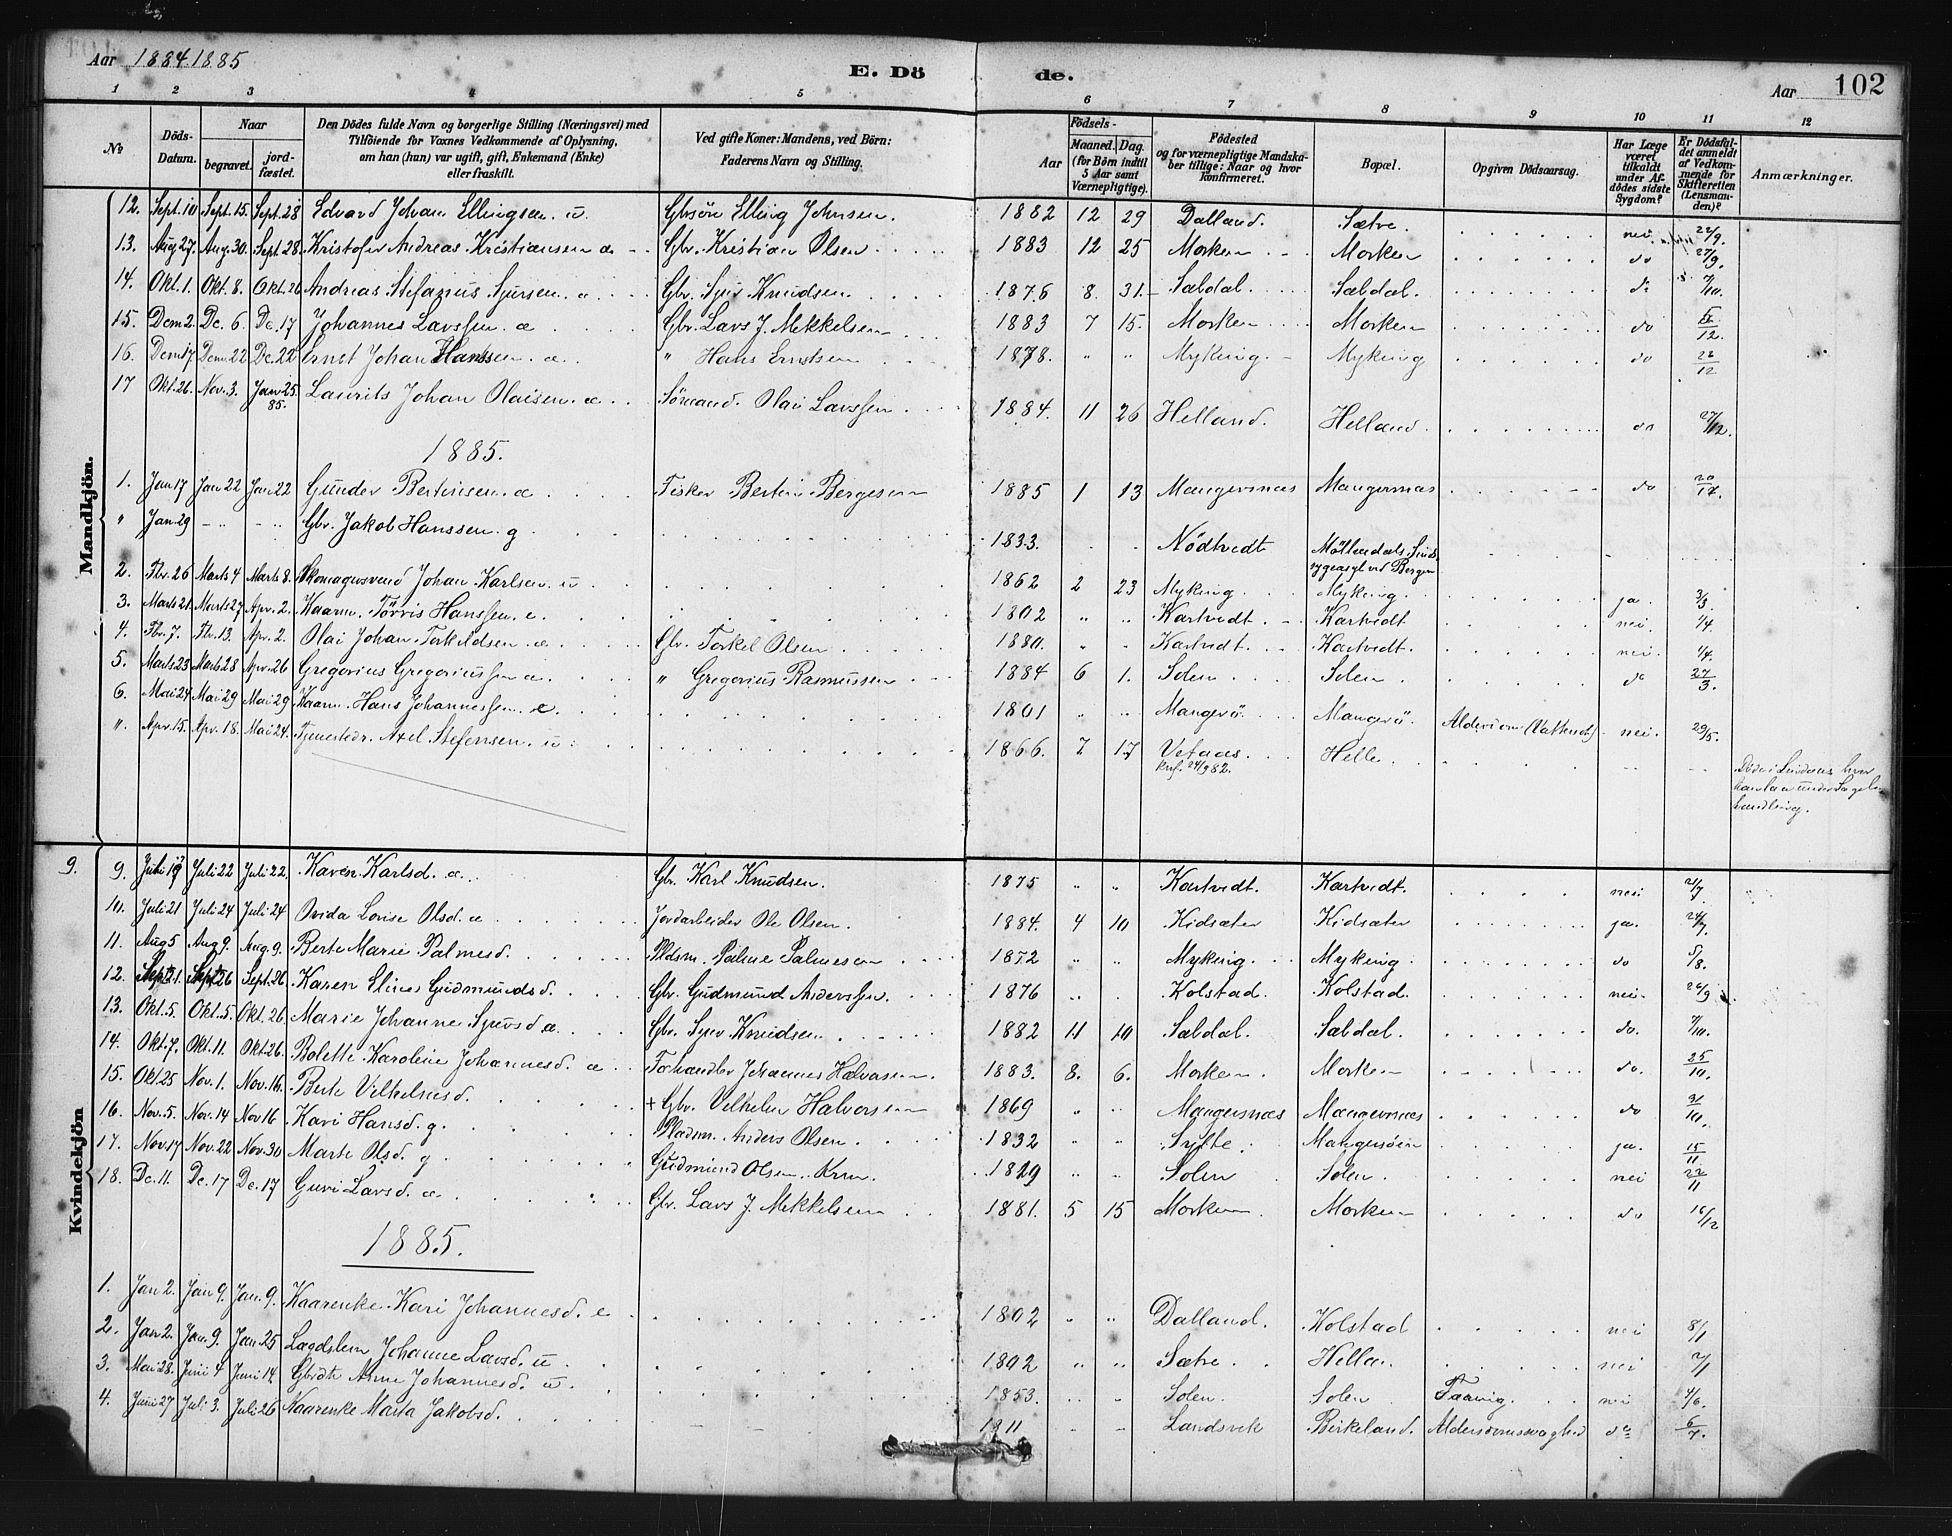 Aar 1884.1885 E. Döde. Aar 102
1 2 3 4 5 6 7 8 9 10 11 12
No Döds-Datum. Naar begravet. jordfæstet. Den Dödes fulde Navn og borgerlige Stilling (Næringsvei) med Tilföiende for Voxnes Vedkommende af Oplysning, om han (hun) var ugift, gift, Enkemand (Enke) eller fraskilt. Ved gifte Koner: Mandens, ved Börn: Faderens Navn og Stilling. Födsels- Aar Maaned. Dag. (for Börn indtil 5 Aar samt Værnepligtige). Födested og for værnepligtige Mandskaber tillige: Naar og hvor konfirmeret. Bopæl. Opgiven Dödsaarsag. Har Læge været tilkaldt under Afdödes sidste Sygdom? Er Dödsfaldet anmeldt af Vedkommende for Skifteretten (Lensmanden)? Anmærkninger.
Mandkjön.
12. Sept. 10 Sept. 15. Sept. 28 Edvard Johan Ellingsen. u. Gbrsön Elling Johnsen. 1882 12 29 Dalland. Sætre. nei. 22/9.
13. Aug 27. Aug. 30. Sept. 28. Kristofer Andreas Kristiansen æ Gbr. Kristian Olsen 1883 12 25 Morken Morken do 27/9.
14. Okt. 1. Okt. 8. Okt. 26 Andreas Stefanus Sjursen. æ Gbr. Sjur Knudsen. 1876 8. 31. Sæbdal. Sæbdal. do 7/10.
15. Dcm 2. Dc. 6. Dc. 17 Johannes Larssen. æ Gbr. Lars J. Mekkelsen 1883 7 15. Morken Morken do 5/12.
16. Dcm 17 Dcm. 22 Dc. 22 Ernst Johan Hanssen. æ. " Hans Ernstsen 1878. " " Myking. Myking do 22/12
17 Okt. 26. Nov. 3. Jan. 25. 85. Laurits Johan Olaisen. æ Sömand. Olai Larssen 1884. 11 26 Helland. Helland. do 27/12.
1885.
1. Jan 17 Jan 22 Jan 22 Gunder Bertinsen. æ Fisker Bertin Bergesen 1885 1 13 Mangersnæs Mangersnæs do 20/17.
" Jan 29 - - Gbr. Jakob Hanssen. g 1833. Nödtvedt Möllendals Sindsygeasyl ved Bergen
2. Fbr. 26 Marts 4 Marts 8. Skomagersvend Johan Karlsen. u 1862 2 23 Myking Myking. ja. 3/3.
3. Marts 21 Marts 27 Apr. 2. Kaarm. Törris Hanssen. e. 1802 " " Kartvedt. Kartvedt nei. 1/4.
4. Fbr. 7. Fbr. 13. Apr. 2. Olai Johan Torkildsen. æ Gbr. Torkel Olsen 1880. Kartvedt. Kartvedt. nei. 1/4.
5. Marts 23 Marts 28 Apr. 26 Gregorius Gregoriussen æ. " Gregorius Rasmussen 1884 6 1. Solen Solen do 27/3.
6. Mai 24 Mai 29 Mai 29 Kaarm. Hans Johannessen. e. 1801 " " Mangerö. Mangerö. Alderdom nei. 29/5.
" Apr. 15. Apr. 18. Mai 24. Tjenestedr. Axel Stefensen. u. 1866. 7 17 Vetaas. Helle
Knf. 24/9 82.
Döde i Lindaas hvor han laa under Lægebehandling.
Kvindekjön
9. 9. Juli 17 Juli 22 Juli 22. Karen Karlsd. æ Gbr. Karl Knudsen. 1875 " " Kartvedt. Kartvedt. nei 2/7.
10. Juli 21 Juli 24 Juli 24 Ovida Lovise Olsd. æ Jordarbeider Ole Olsen. 1884. 4 10 Kidsæter Kidsæter ja. 24/7.
11. Aug 5 Aug 9. Aug. 9. Berte Marie Palmesd. Pldsm. Palme Palmesen 1872 " " Myking. Myking. do 5/8.
12. Sept 21. Sept 26 Sept. 26. Karen Eline Gudmundsd. Gbr. Gudmund Anderssen. 1876 " Kolstad. Kolstad. nei. 26/9
13. Okt. 5. Okt. 5. Okt. 26. Marie Johanne Sjursd. æ. Gbr. Sjur Knudsen 1882 11 10 Sæbdal. Sæbdal. do. 7/10.
14. Okt. 7. Okt. 11. Okt. 26. Bolette Karoline Johannesd. æ Johannes Halvorsen. 1883. 8. 6. Morken. Morken do. 25/10.
15. Okt 25 Nov. 1. Nov. 16. Berte Vilhelmsd. + Gbr. Vilhelm Halvorsen 1869 " " Mangersnæs Mangersnæs do 31/10.
16. Nov. 5. Nov. 14 Nov 16 Kari Hansd. g. Pladsm. Anders Olsen. 1832 " " Sylte. Mangersöen ja. 15/11
17. Nov. 17 Nov. 22 Nov. 30 Marte Olsd. g Gudmund Olsen. Krm. 1829 " " Solen Solen. nei 22/11
18. Dc. 11. Dc. 17 Dc. 17 Guri Larsd. æ Gbr. Lars J. Mekkelsen 1881. 5 15 Morken Morken do 16/12
1885.
1. Jan 2. Jan 9. Jan. 9. Kaarenke. Kari Johannesd. e 1802 " " Dalland. Kolstad nei 8/1
2. Jan 2. Jan. 9. Jan 25 Lægdslem Johanne Larsd. u 1802 " " Sætre. Hella. nei 2/1
3. Mai 28. Juni 4 Juni 14. Gbrdt. Anne Johannesd. u. 1853. Solen. Solen Tæring. nei 4/6.
4. Juni 27 Juli 3. Juli 26 Kaarenke Marta Jakobsd. 1811 Landsvik Birkeland. Alderdomssvaghed do 6/7.